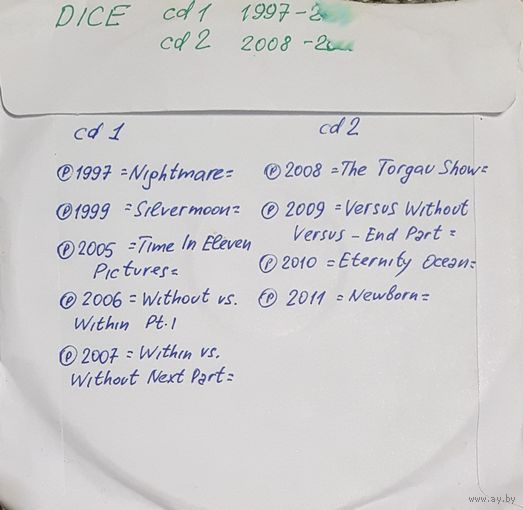 DICE cd 1 1997-2
cd 2 2008-2
cd 1
cd 2
Ⓟ 1997 =Nightmare=
Ⓟ 1999 =Silvermoon=
Ⓟ 2005 =Time In Eleven
Pictures=
Ⓟ 2006 =Without vs.
Within Pt.1
Ⓟ 2007 = Within vs.
Without Next Part=
Ⓟ 2008 =The Torgau Show=
Ⓟ 2009 =Versus Without
Versus - End Part =
Ⓟ 2010 =Eternity Ocean=
Ⓟ 2011 =Newborn=
www.ay.by